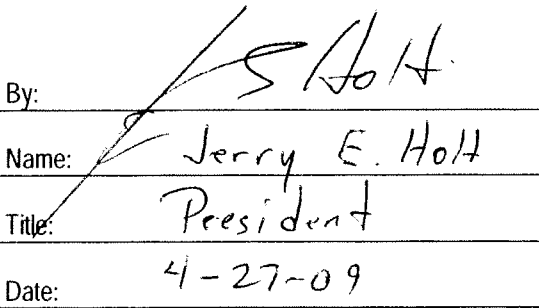 By: Holt
Name: Jerry E. Holt
Title: President
Date: 4-27-09